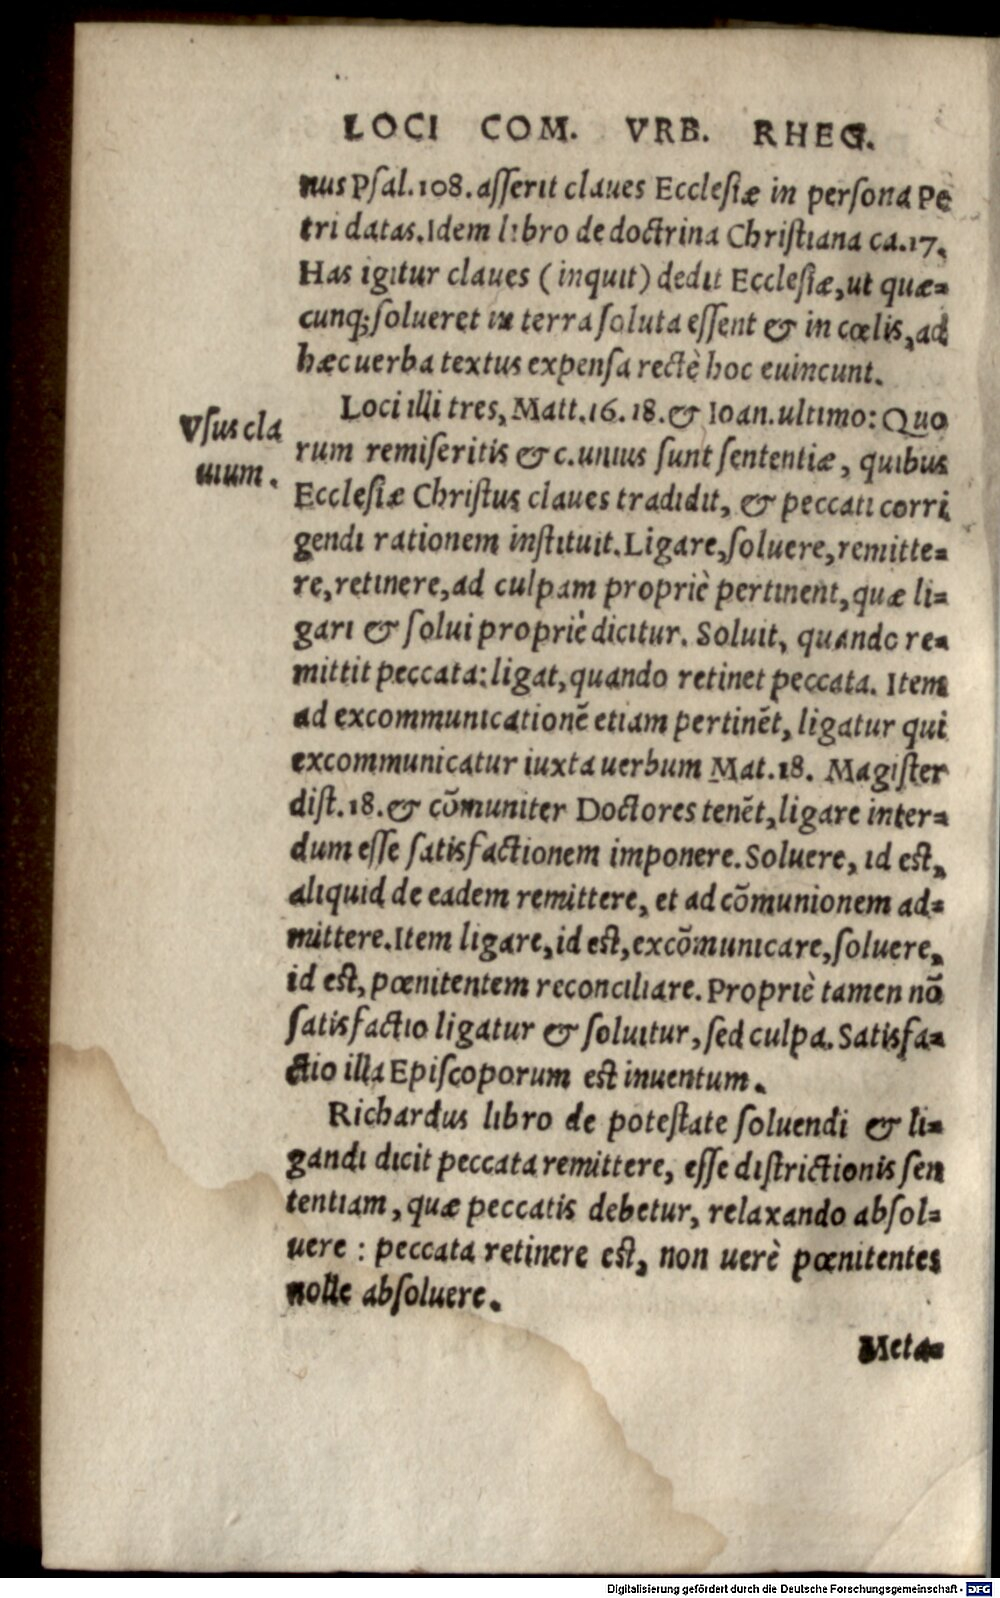 LOCI COM. VRB. RHEG.
nus Psal.108.asserit claues Ecclesiæ in persona Pe
tri datas.Idem libro de doctrina Christiana ca.17.
Has igitur claues (inquit) dedit Ecclesiæ,ut quæ-
cunq;solueret in terra soluta essent & in cœlis,ad
hæc uerba textus expensa rectè hoc euincunt.
Vsus cla
uium.
Loci illi tres, Matt.16.18.& Ioan.ultimo: Quo
rum remiseritis &c.unius sunt sententiæ, quibus
Ecclesiæ Christus claues tradidit, & peccati corri
gendi rationem instituit.Ligare,soluere,remitte-
re,retinere,ad culpam propriè pertinent,quæ li-
gari & solui propriè dicitur. Soluit, quando re-
mittit peccata:ligat,quando retinet peccata. Item
ad excommunicationē etiam pertinēt, ligatur qui
excommunicatur iuxta uerbum Mat.18. Magister
dist.18.& cōmuniter Doctores tenēt,ligare inter-
dum esse satisfactionem imponere.Soluere, id est,
aliquid de eadem remittere, et ad cōmunionem ad-
mittere.Item ligare,id est,excōmunicare,soluere,
id est, pœnitentem reconciliare.Propriè tamen nō
satisfactio ligatur & soluitur,sed culpa.Satisfa-
ctio illa Episcoporum est inuentum.
Richardus libro de potestate soluendi & li-
gandi dicit peccata remittere, esse districtionis sen
tentiam, quæ peccatis debetur, relaxando absol-
uere : peccata retinere est, non uerè pœnitentes
nolle absoluere.
Meta-
Digitalisierung gefördert durch die Deutsche Forschungsgemeinschaft - DFG